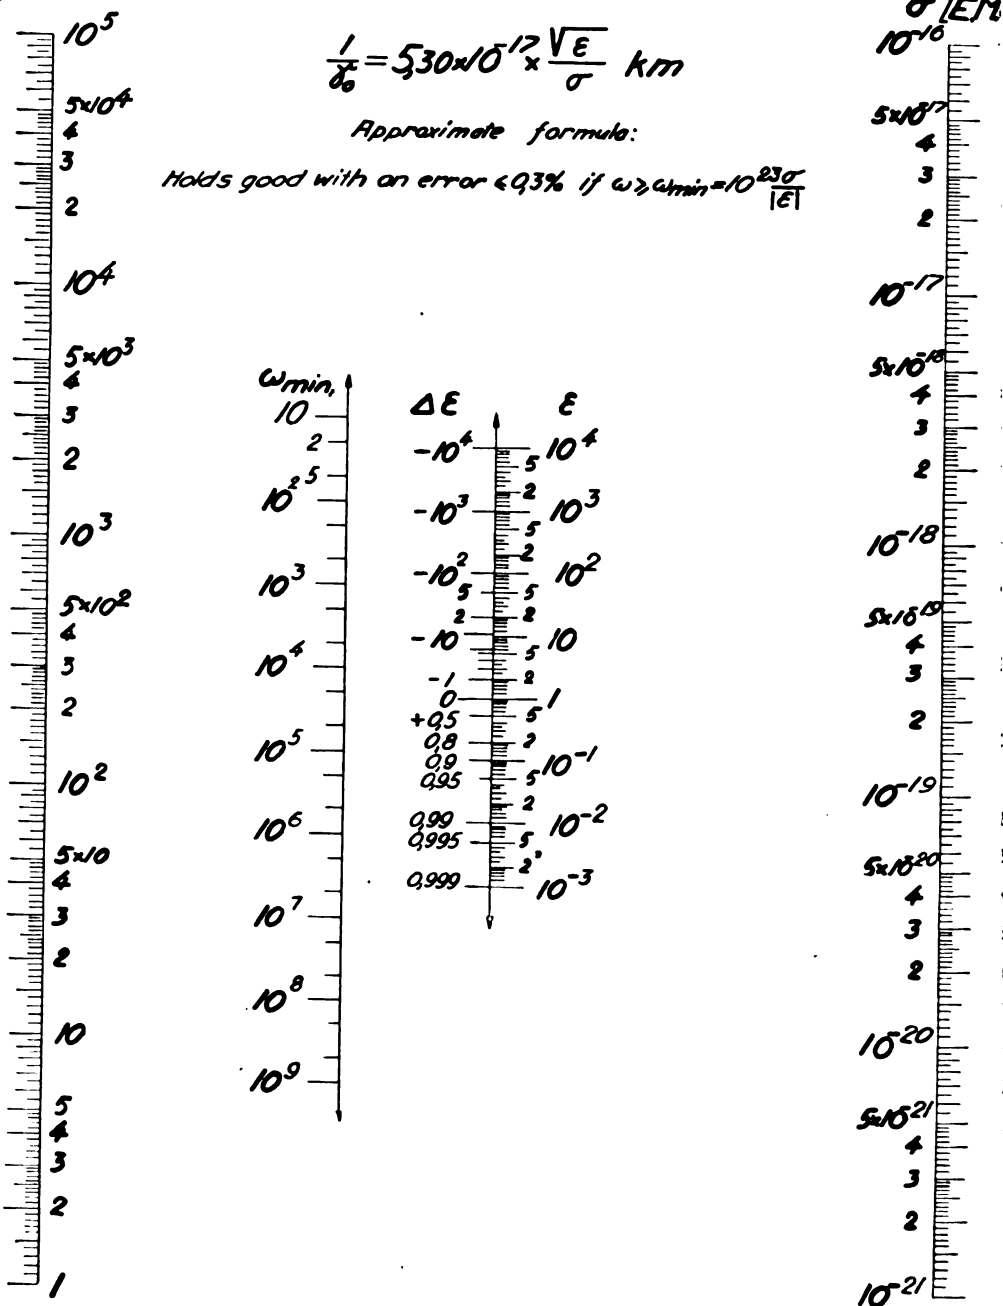 σ [EM
1/γ₀ = 5,30x10⁻¹⁷ x √ε/σ km
Approximate formula:
Holds good with an error ≤ 0,3% if ω ≥ ωmin = 10²³σ/|ε|
10⁵
5x10⁴
4
3
2
10⁴
5x10³
4
3
2
10³
5x10²
4
3
2
10²
5x10
4
3
2
10
5
4
3
2
1
ωmin,
10
2
5
10²
10³
10⁴
10⁵
10⁶
10⁷
10⁸
10⁹
Δε
-10⁴
-10³
-10²
5
2
-10
-1
0
+0,5
0,8
0,9
0,95
0,99
0,995
0,999
ε
10⁴
5
2
10³
5
2
10²
5
2
10
5
2
1
5
2
10⁻¹
5
2
10⁻²
5
2
10⁻³
10⁻¹⁶
5x10⁻¹⁷
4
3
2
10⁻¹⁷
5x10⁻¹⁸
4
3
2
10⁻¹⁸
5x10⁻¹⁹
4
3
2
10⁻¹⁹
5x10⁻²⁰
4
3
2
10⁻²⁰
5x10⁻²¹
4
3
2
10⁻²¹